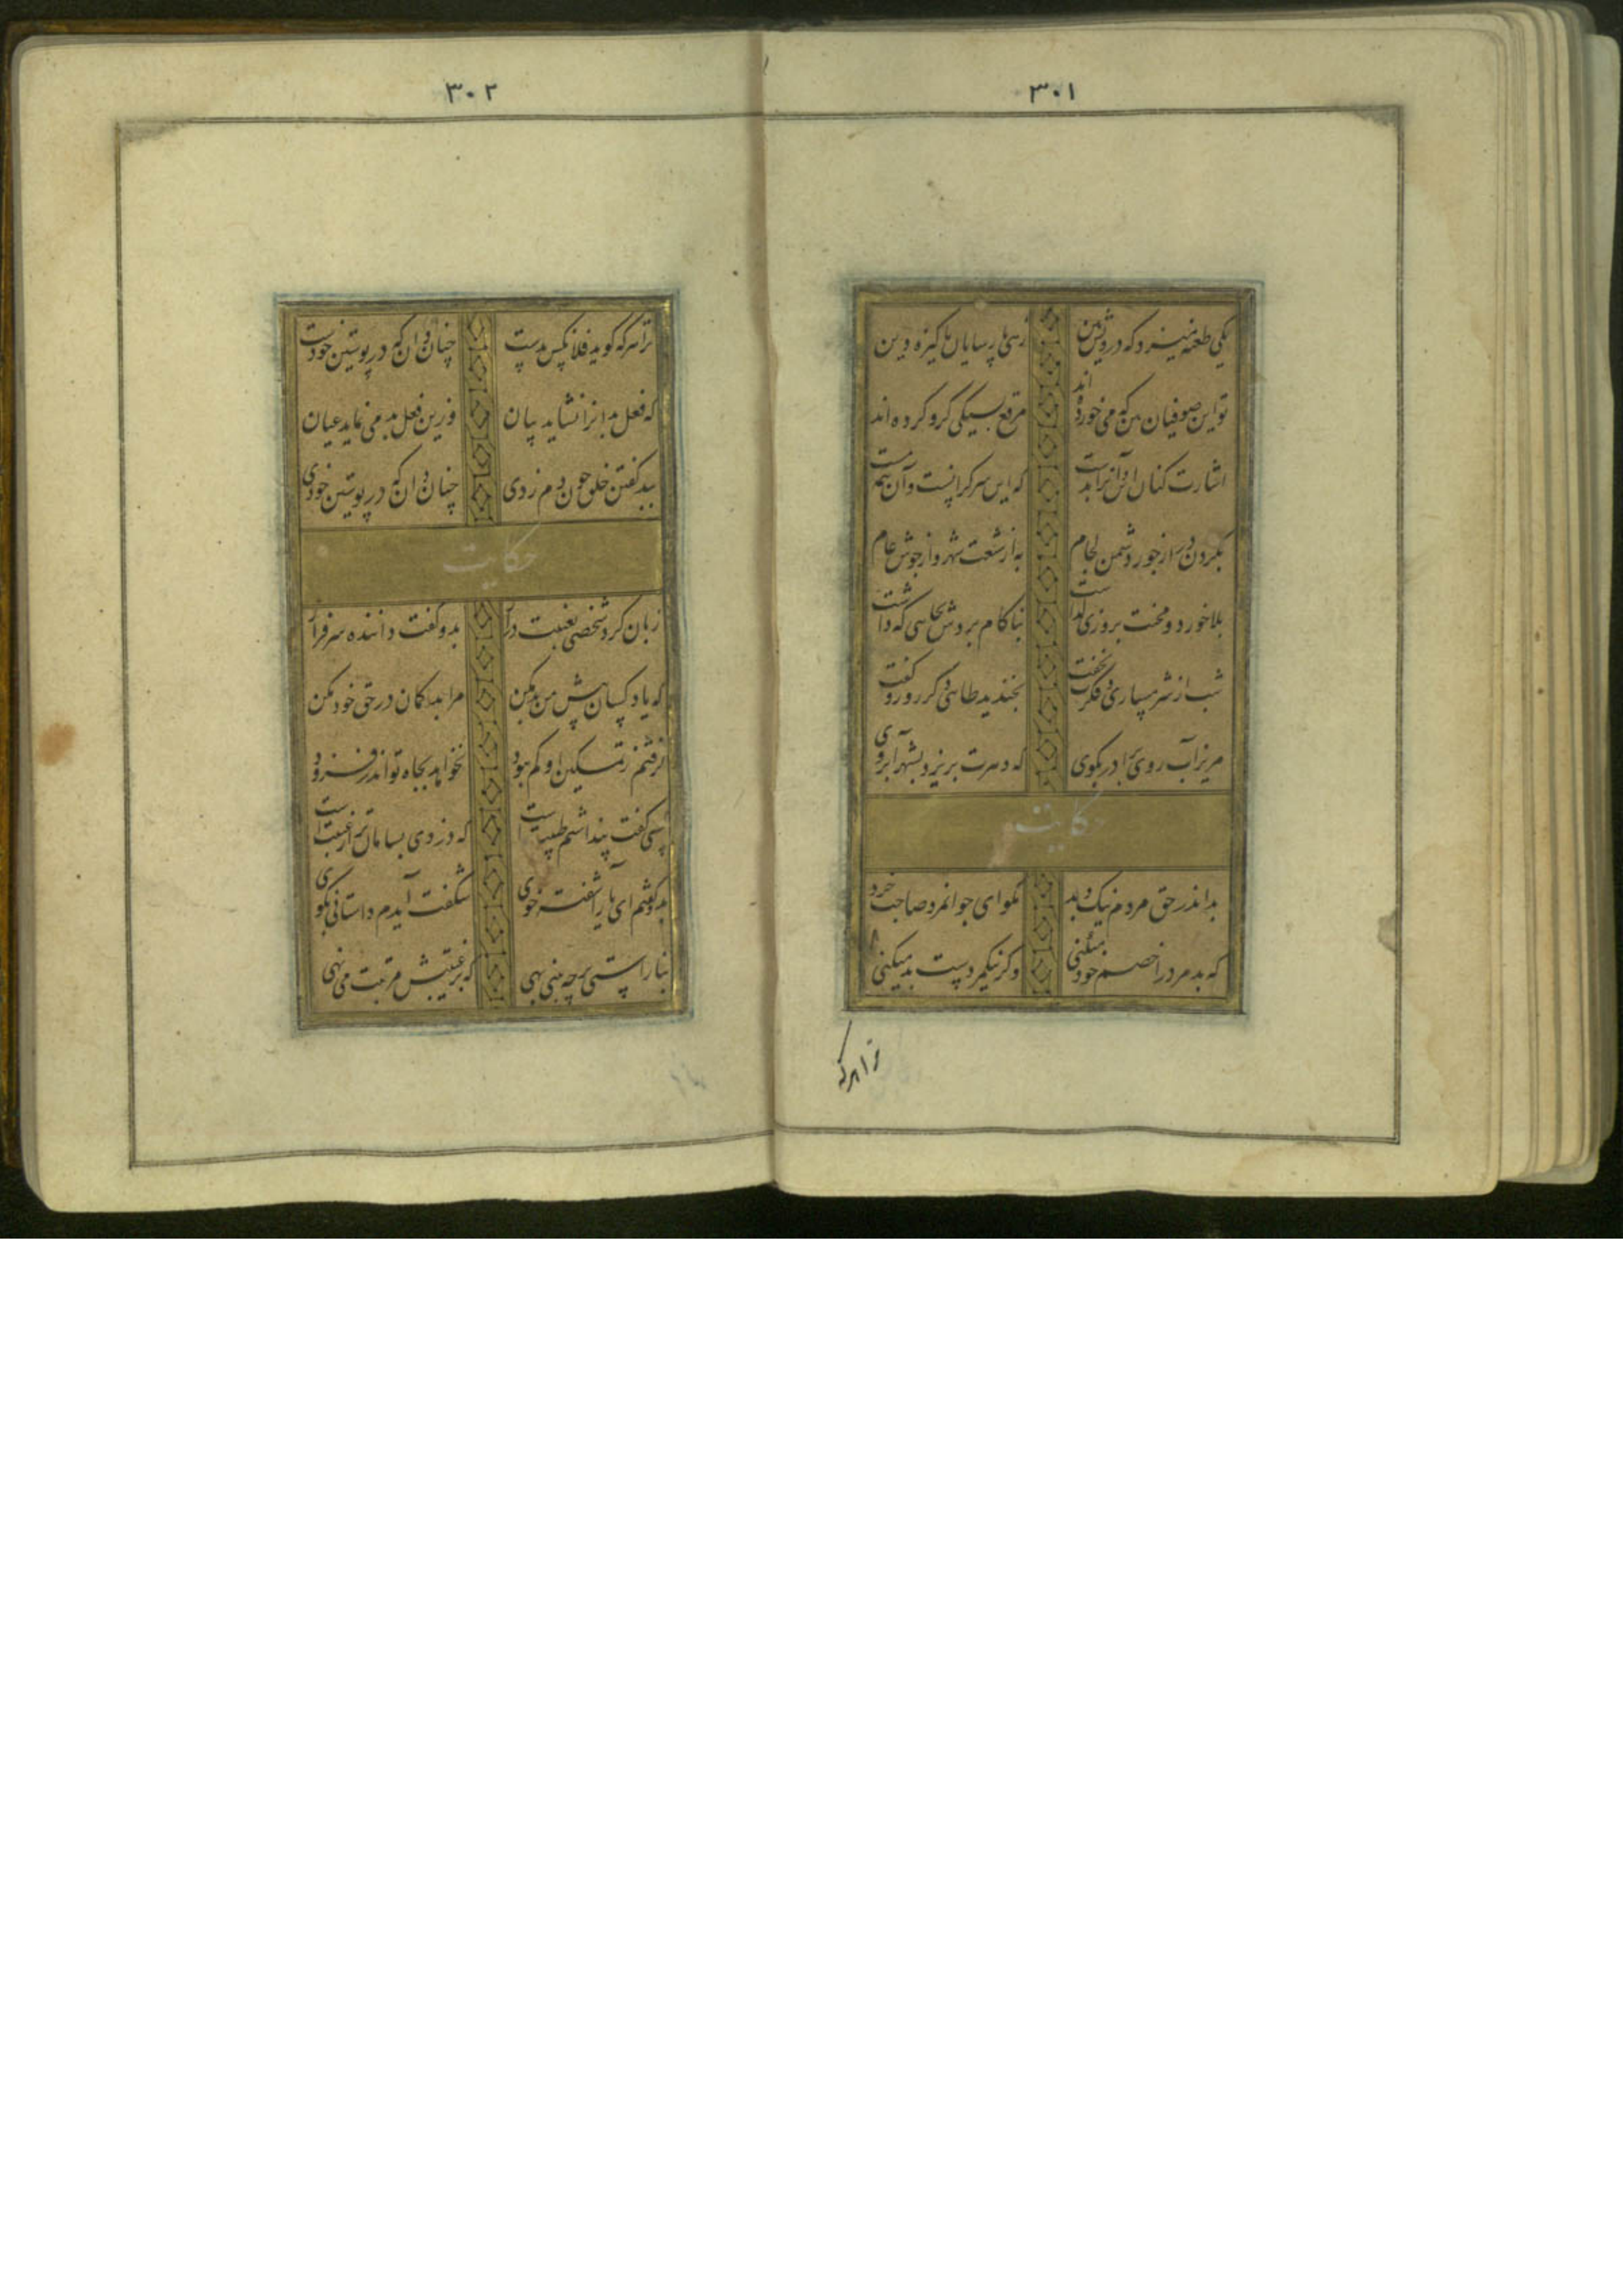 ۳۰۱
یکی طعنه میزد که درویش بین زهی پارسایان پاکیزه دین
تو این صوفیان بین که می خورده اند مرقع بسیکی گرو کرده اند
اشارت کنان این و آنرا بدست که این سرگرانست و آن نیم مست
بگردن بر از جور دشمن حسام به از شنعت شهر و از جوش عام
بلا خورد و محنت بروزی گذاشت بناکام بردش بجایی که داشت
شب از شرمساری و فکرت نخفت بخندید طایی دگر روز و گفت
مریز آب روی برادر بکوی که دهرت بریزد بشهر آبروی
حکایت
بد اندر حق مردم نیک و بد مگو ای جوانمرد صاحب خرد
که بد مرد را خصم خود میکنی وگر نیکمردست بد میکنی
ترا هرکه
۳۰۲
ترا هرکه گوید فلانکس بدست چنان دان که در پوستین خودست
که فعل بد انرا نشاید بیان وزین فعل بد می نماید عیان
ببد گفتن خلق چون دم زدی چنان دان که در پوستین خودی
حکایت
زبان کرد شخصی بغیبت دراز بدو گفت داننده سرفراز
که یاد کسان پیش من بد مکن مرا بد گمان در حق خود مکن
گرفتم ز تمکین او کم ببود نخواهد بجاه تو اندر فزود
کسی گفت پنداشتم طیبت است که دزدی بسامان تر از غیبت است
بدو گفتم ای یار آشفته خوی شگفت آیدم داستانی بگوی
بنا راستی چه بینی بهی که بر غیبتش مرتبت می نهی